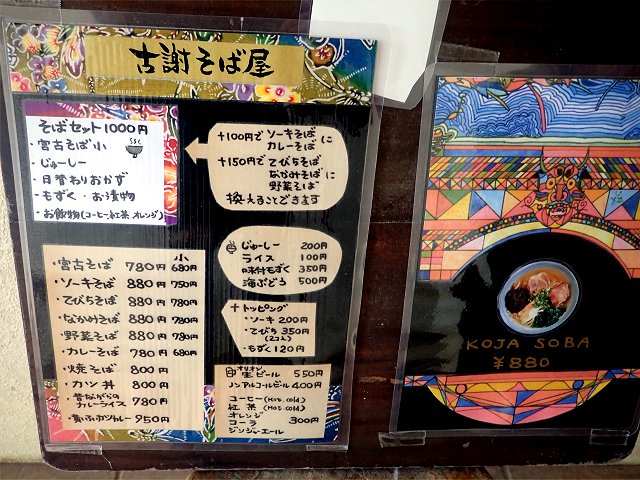 古謝そば屋
そばセット 1000円
・宮古そば 小
・じゅーしー
・日替わりおかず
・もずく・お漬物
・お飲物(コーヒー,紅茶 オレンジ)
+100円で ソーキそば
カレーそば に
+150円で てびちそば
なかみそば に
野菜そば
換えることできます
小
・宮古そば 780円 680円
・ソーキそば 880円 750円
・てびちそば 880円 780円
・なかみそば 880円 780円
・野菜そば 880円 780円
・カレーそば 780円 680円
・焼そば 800円
・カツ丼 800円
・昔ながらの
カレーライス 780円
・カツカレー 950円
じゅーしー 200円
ライス 100円
味付もずく 350円
海ぶどう 500円
+トッピング
・ソーキ 200円
・てびち 350円
(2コ入)
・もずく 120円
オリオン
生ビール 550円
ノンアルコールビール 400円
コーヒー(HOT.COLD)
紅茶(HOT.COLD)
オレンジ
コーラ 300円
ジンジャーエール
KOJA SOBA
¥880